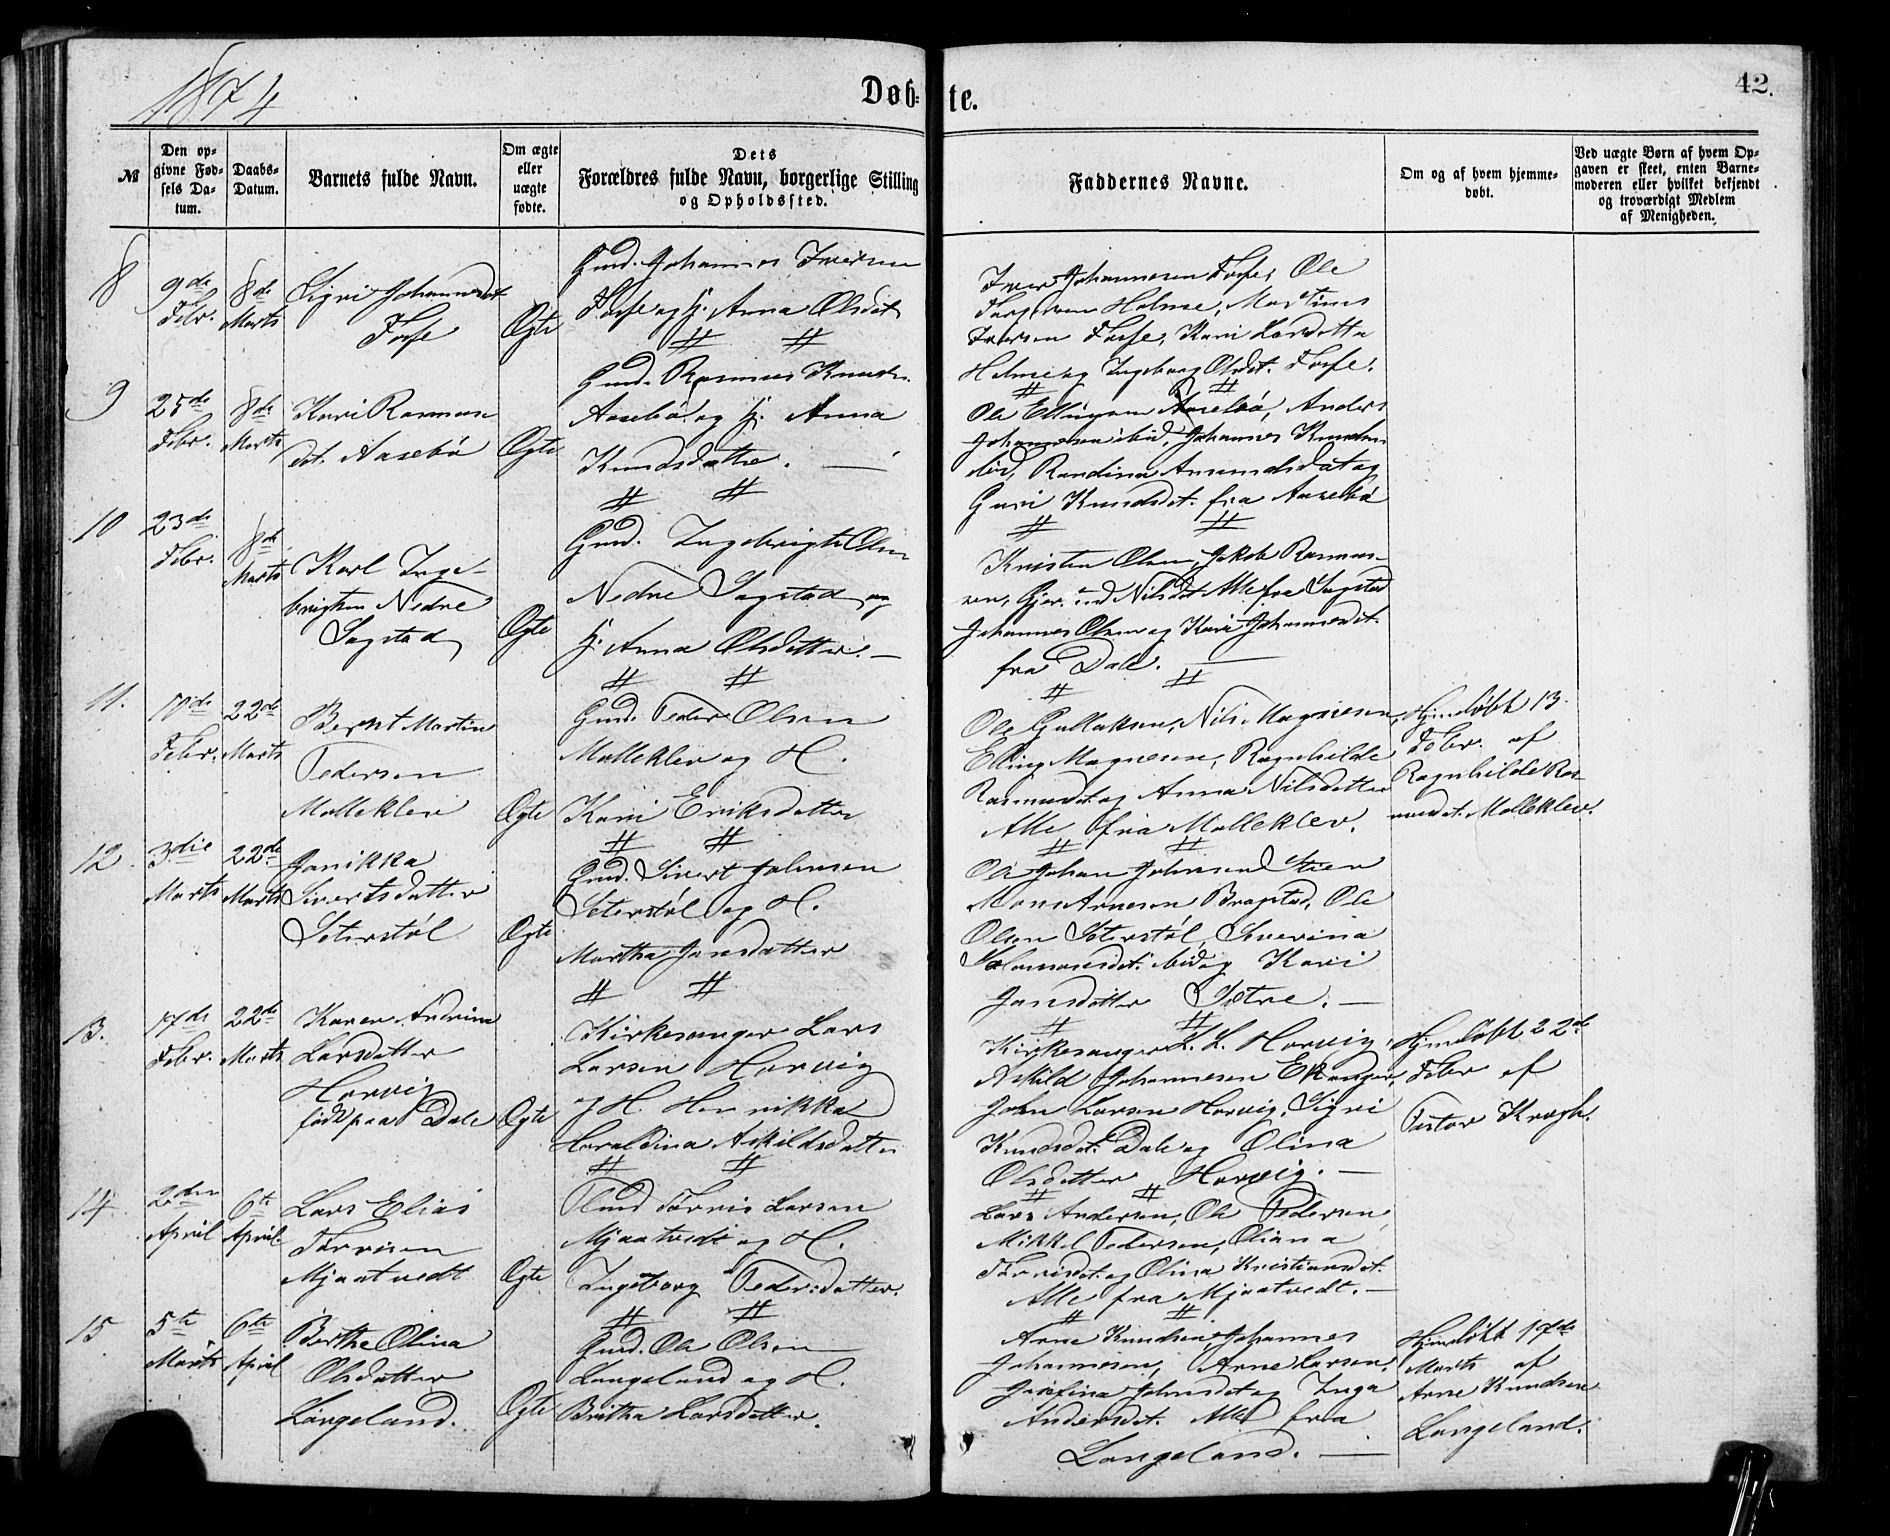 1874
Døb-
te.
42.
№
Den op-
givne Fød-
sels Da-
tum.
Daabs-
Datum.
Barnets fulde Navn.
Om ægte
eller
uægte
fødte.
Dets
Forældres fulde Navn, borgerlige Stilling
og Opholdssted.
Faddernes Navne.
Om og af hvem hjemme-
døbt.
Ved uægte Børn af hvem Op-
gaven er skeet, enten Barne-
moderen eller hvilket bekjendt
og troværdigt Medlem
af Menigheden.
8
9de
Febr.
8de
Marts
Sigri Johannesdt
Fosse
Ægte
Gmd. Johannes Iversen
Fosse og H. Anna Olsdat
Iver Johannesen Fosse, Ole
Helme, Martinus
Iversen Fosse, Kari Larsdatter
Helme og Ingeborg Olsdt. Fosse.
9
25de
Febr.
8de
Marts
Kari Rasmus-
dt. Aasebö
Ægte
Gmd. Rasmus Knuds.
Aasebö og H. Anna
Knudsdatter. —
Ole Ellingsen Aasebö, Anders
Johannesen ibid, Johannes Knudsen
ibid, Randina Amundsdat og
Guri Knudsdt. fra Aasebö
10
23de
Febr.
8de
Marts
Karl Inge-
brigtsen Nedre
Sagstad
Ægte
Gmd. Ingebrigt Olsen
Nedre Sagstad og
H. Anna Olsdatter. —
Kristen Olsen, Jakob Rasmus-
sen, Nilsdt Alle fra Sagstad
Johannes Olsen og Kari Johannesdt.
fra Dale. —
11.
11de
Febr.
22de
Marts
Bernt Martin
Pedersen
Molleklev
Ægte
Gmd. Peder Olsen
Molleklev og H.
Kari Eriksdatter
Ole Gullaksen, Nils Magnesen,
Elling Magnesen, Ragnhilde
Rasmusdt og Anna Nilsdatter
Alle fra Molleklev.
Hjemdöbt 13
Febr. af
Ragnhilde Ras-
musdt. Molleklev.
12
3die
Marts
22de
Marts
Janikka
Sivertsdatter
Seterstöl
Ægte
Gmd. Sivert Johnsen
Seterstöl og H.
Martha Jansdatter
Ole Johan Johnsen
Mons Arnesen Brogstad, Ole
Olsen Seterstöl, Severina
Salomonsdt. ibid og Kari
Jansdatter Sætre. —
13.
17de
Febr.
22de
Marts
Karen Andrina
Larsdatter
Horvig
født paa Dale
Ægte
Kirkesanger Lars
Larsen Horvig
og H. Henrikka
Haraldina Askildsdatter
Kirkesanger L. L. Horvig,
Askild Johannesen Ekanger,
John Larsen Horvig, Sigri
Knudsdt. Dale og Olina
Olsdatter Horvig. —
Hjemdöbt 22de
Febr af
Pastor Krogh.
14
2den
April
6te
April
Lars Elias
Törrisen
Mjaatvedt
Ægte
Törris Larsen
Mjaatvedt og H.
Ingeborg Pedersdatter.
Lars Andersen, Ole Pedersen,
Mikkel Pedersen, Oliana
Törrisdt. og Olina Kristiansdt.
Alle fra Mjaatvedt. —
15
5te
Marts
6te
April
Berthe Olina
Olsdatter
Langeland.
Ægte
Gmd. Ole Olsen
Langeland og H.
Britha Larsdatter.
Arne Knudsen, Johannes
Johannesen, Arne Larsen,
Josefina Johnsdt og Inga
Andersdt. Alle fra
Langeland. —
Hjemdöbt 17de
Marts af
Arne Knudsen
Langeland.